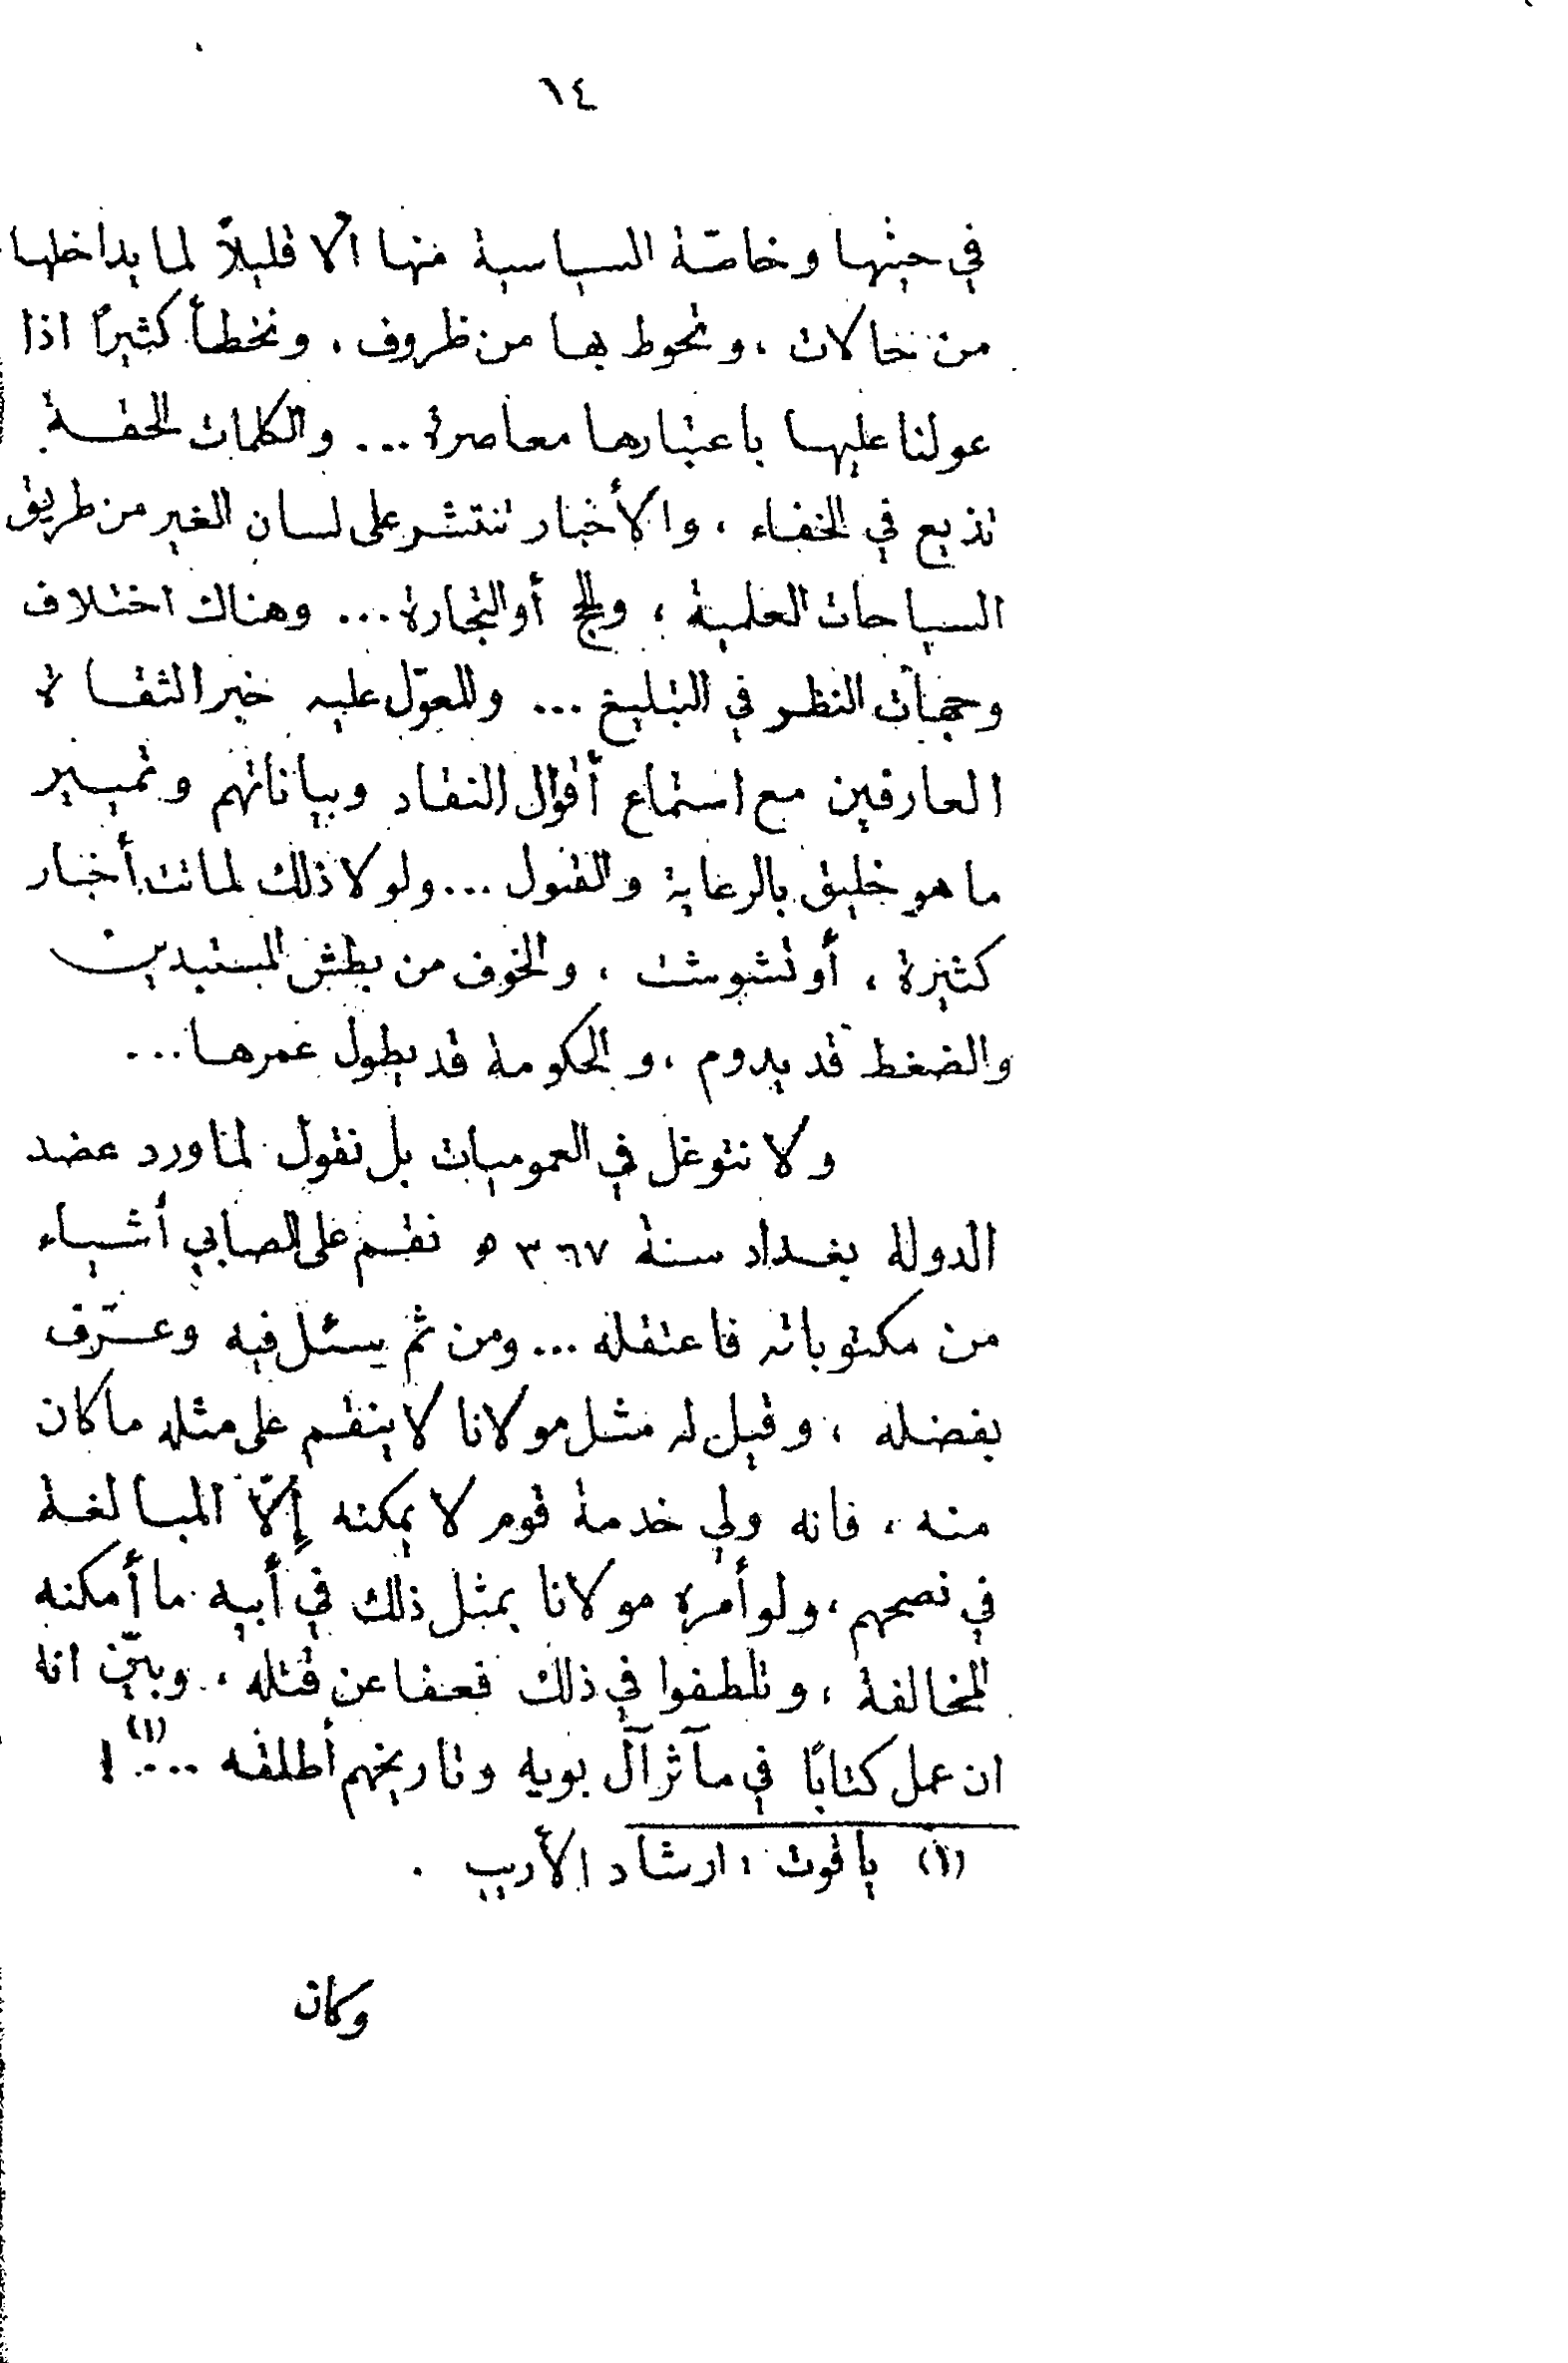 ١٤
في حينها وخاصّة السياسية منها الا قليلاً لما يداخلها
من حالات ، وتحوط بها من ظروف ، ونخطأ كثيراً اذا
عولنا عليها باعتبارها معاصرة ... والكلمات الحقة
تذيع في الخفاء ، والأخبار تنتشر على لسان الغير من طريق
السياحات العلمية ، والحج أو التجارة ... وهناك اختلاف
وجهات النظر في التبليغ ... والمعوّل عليه خبر الثقاة
العارفين مع استماع أقوال النقاد وبياناتهم وتمييز
ما هو خليق بالرعاية والقبول ... ولولا ذلك لماتت أخبار
كثيرة ، أو تشوشت ، والخوف من بطش المستبدين
والضغط قد يدوم ، والحكومة قد يطول عمرها ...
ولا نتوغل في العموميات بل نقول لما ورد عضد
الدولة بغداد سنة ٣٦٧ ه نقم على الصابي أشياء
من مكتوباته فاعتقله ... ومن ثم يسئل فيه وعرّف
بفضله ، وقيل له مثل مولانا لا ينقم على مثله ما كان
منه ، فانه ولي خدمة قوم لا يمكنه إلّا المبالغة
في نصحهم ، ولو أمره مولانا بمثل ذلك في أبيه ما أمكنه
المخالفة ، وتلطفوا في ذلك فعفا عن قتله ، وبيّن انه
ان عمل كتابًا في مآثر آل بويه وتاريخهم أطلقه ...(١) !
(١) ياقوت ، ارشاد الأريب .
وكان